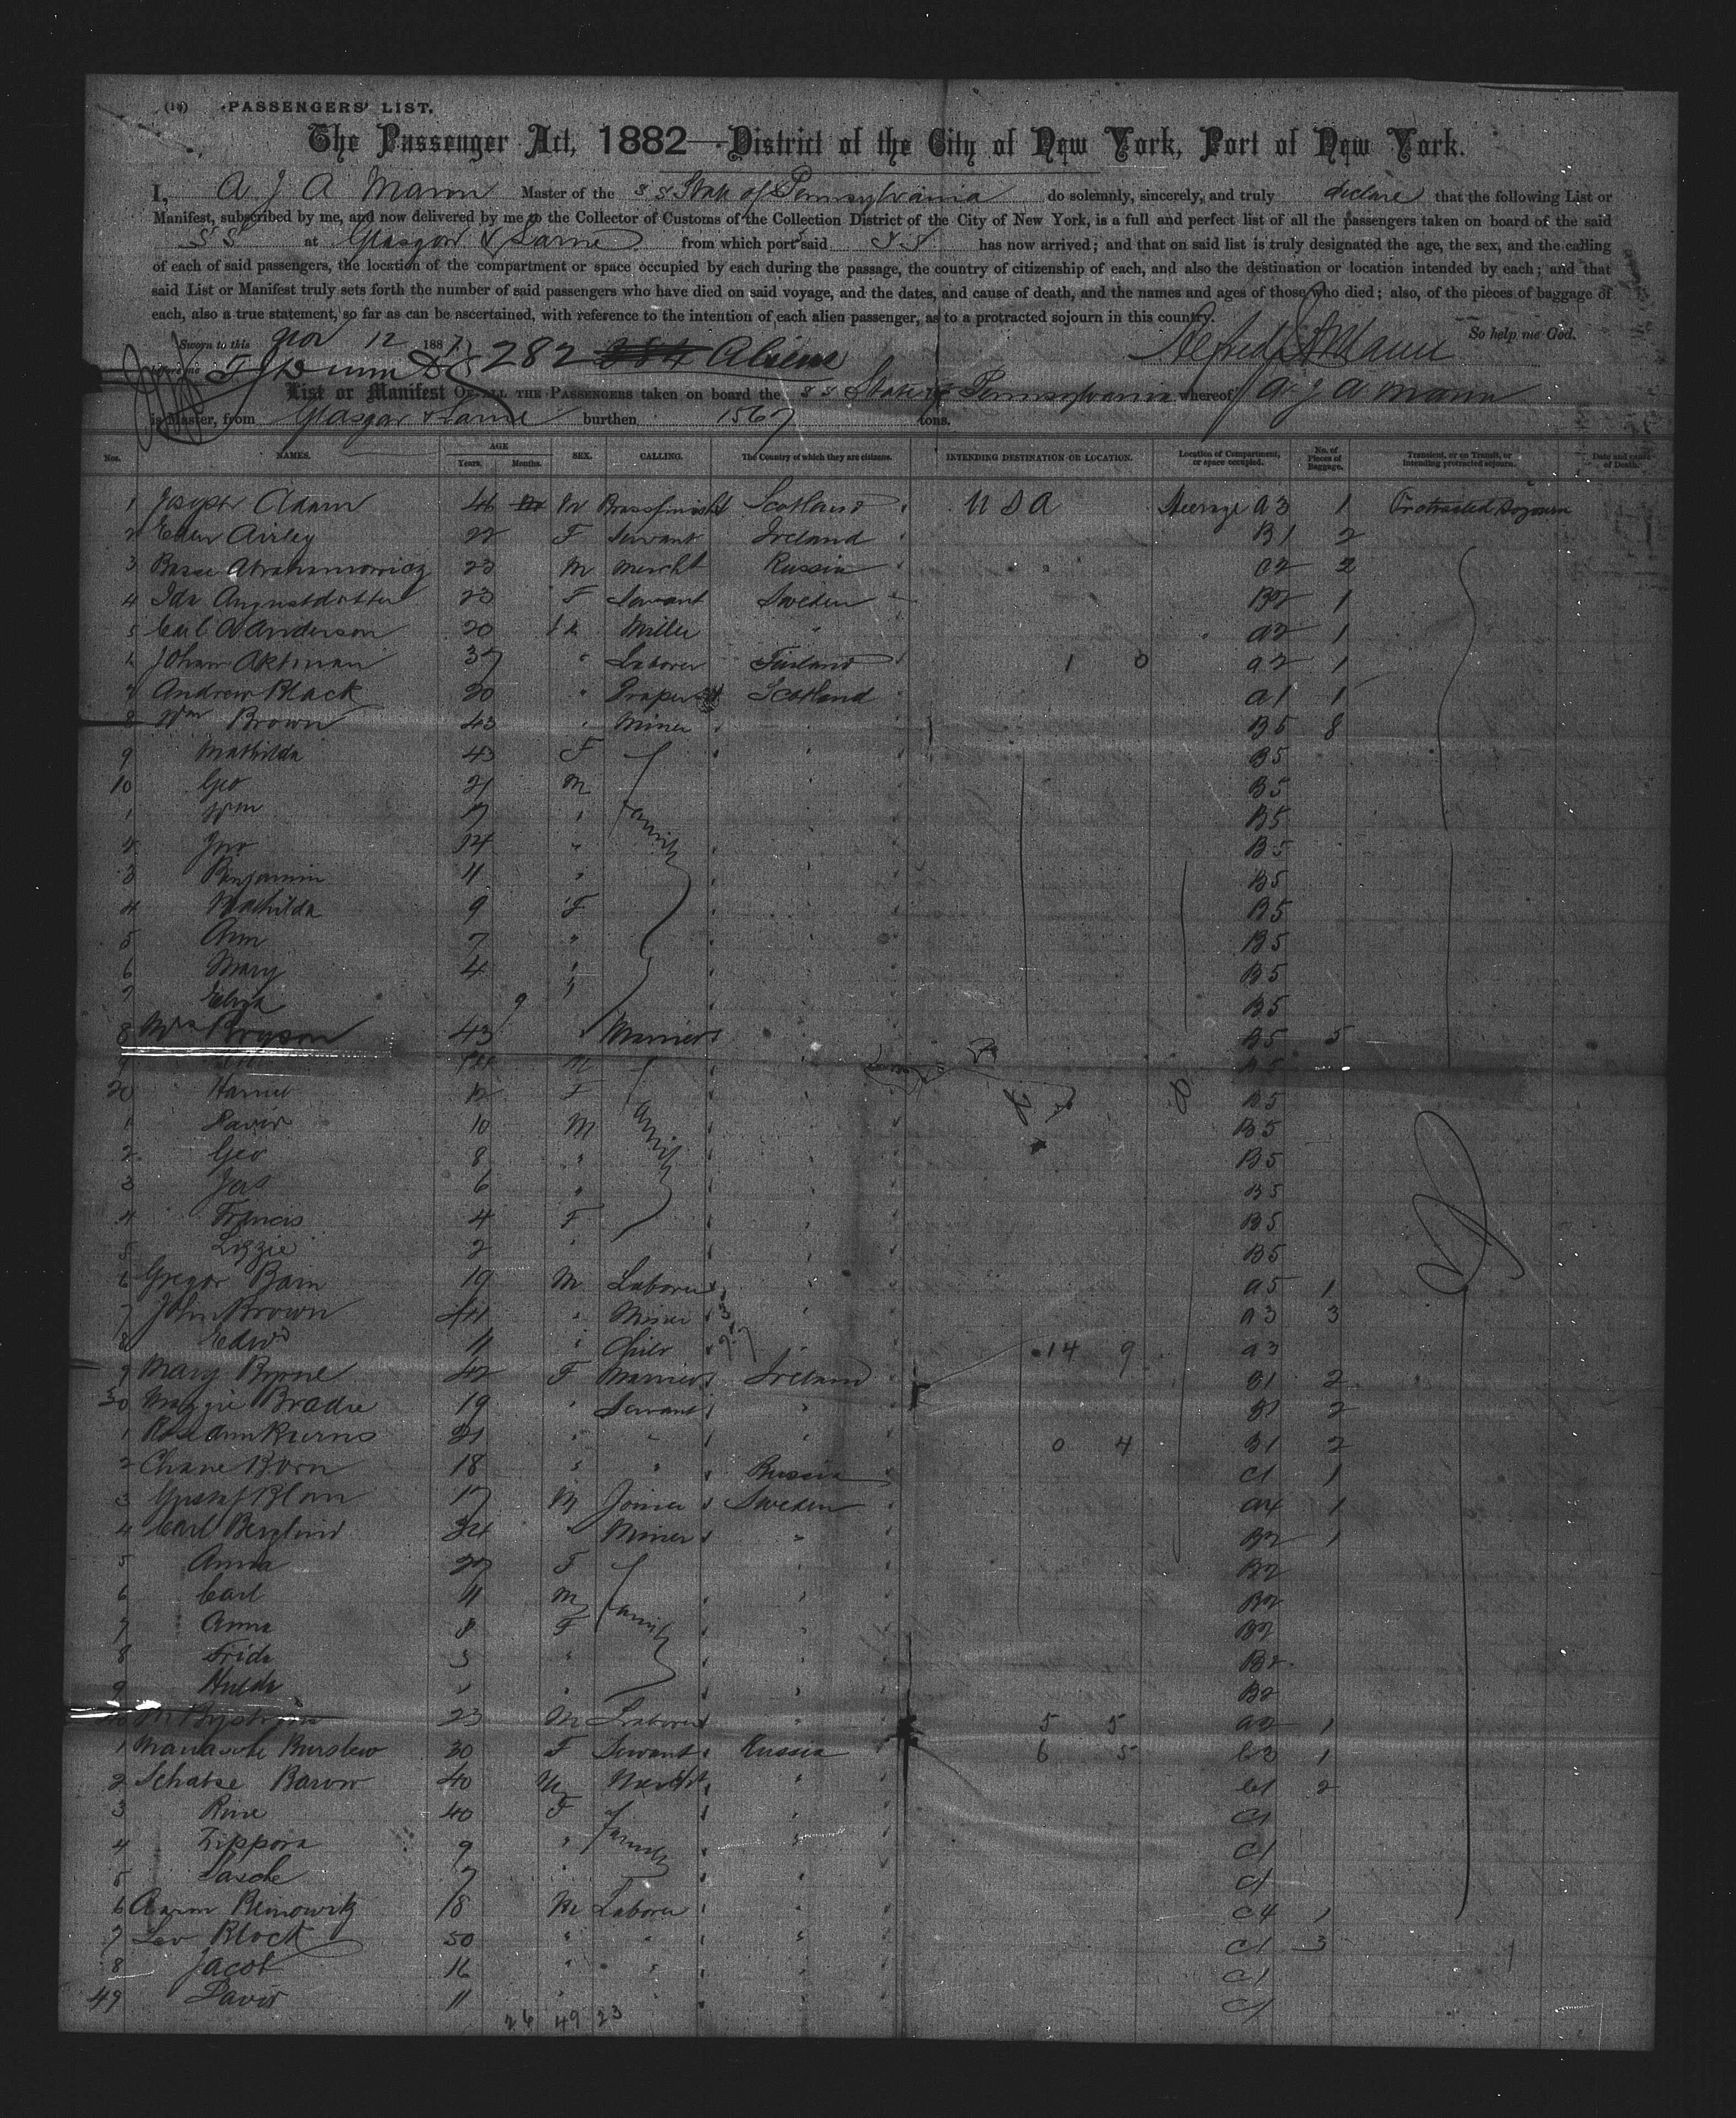 (10) PASSENGERS' LIST.
The Passenger Act, 1882—District of the City of New York, Port of New York.
I, A J A Mann Master of the S S State of Pennsylvania do solemnly, sincerely, and truly declare that the following List or
Manifest, subscribed by me, and now delivered by me to the Collector of Customs of the Collection District of the City of New York, is a full and perfect list of all the passengers taken on board of the said
S S at Glasgow & Larne from which ports said S S has now arrived; and that on said list is truly designated the age, the sex, and the calling
of each of said passengers, the location of the compartment or space occupied by each during the passage, the country of citizenship of each, and also the destination or location intended by each; and that
said List or Manifest truly sets forth the number of said passengers who have died on said voyage, and the dates, and cause of death, and the names and ages of those who died; also, of the pieces of baggage of
each, also a true statement, so far as can be ascertained, with reference to the intention of each alien passenger, as to a protracted sojourn in this country.
So help me God.
Sworn to this Nov 12 1887 282 Aliens Alfred J A Mann
List or Manifest OF ALL THE PASSENGERS taken on board the S S State of Pennsylvania whereof A J A Mann
is Master, from Glasgow & Larne burthen 1567 tons.
Nos. NAMES. AGE Years. Months. SEX. CALLING. The Country of which they are citizens. INTENDING DESTINATION OR LOCATION. Location of Compartment, or space occupied. No. of Pieces of Baggage. Transient, or on Transit, or intending protracted sojourn. Date and cause of Death.
1 Joseph Adam 46 M Brassfinisht Scotland U S A Steerage a3 1 Protracted Sojourn
2 Ellen Airley 22 F Servant Ireland B1 2
3 Abrahamowicz 23 M Mercht Russia a2 2
4 Ida Augustdotter 23 F Servant Sweden B2 1
5 Carl A Anderson 20 M Miller " a2 1
6 Johan Aktman 37 " Laborer Finland 1 0 a2 1
7 Andrew Black 20 " Draper Scotland a1 1
8 Wm Brown 43 " Miner " B5 8
9 Mathilda 43 F Family " B5
10 Geo 21 M " B5
1 Wm 17 " " B5
2 Jno 14 " " B5
3 Benjamin 11 " " B5
4 Mathilda 9 F " B5
5 Ann 7 " " B5
6 Mary 4 " " B5
7 Eliza 9 " " B5
8 Mrs Bryson 43 " Married " B5 5
9 M B5
20 12 F Family " B5
1 David 10 M " B5
2 Geo 8 " " B5
3 Jas 6 " " B5
4 Francis 4 F " B5
5 Lizzie 2 " " B5
6 Gregor Bain 19 M Laborer " a5 1
7 John Brown 44 " Miner " a3 3
8 Edwd 11 " " 14 9 a3
9 Mary Byrne 42 F Married Ireland B1 2
30 Maggie Bradie 19 " Servant " B1 2
1 Roseann 21 " " " 0 4 B1 2
2 Chane Born 18 " " Russia C1 1
3 Gustaf Blom 17 M Joiner Sweden a4 1
4 Carl Berglind 34 " Miner " B2 1
5 Anna 27 F Family " B2
6 Carl 11 M " B2
7 Anna 8 F " B2
8 Frida 3 " " B2
9 Hulda 1 " " B2
23 M Laborer " 5 5 a2 1
1 30 F Servant Russia 6 5 C3 1
2 Schatse Baron 40 M Mercht " C1 2
3 Rine 40 F Family " C1
4 Zippora 9 " " C1
5 Sasche 7 " " C1
6 18 M Laborer " C4 1
7 Lev Block 50 " " " C1 3
8 Jacob 16 " " " C1
49 David 11 " " " C1
26 49 23